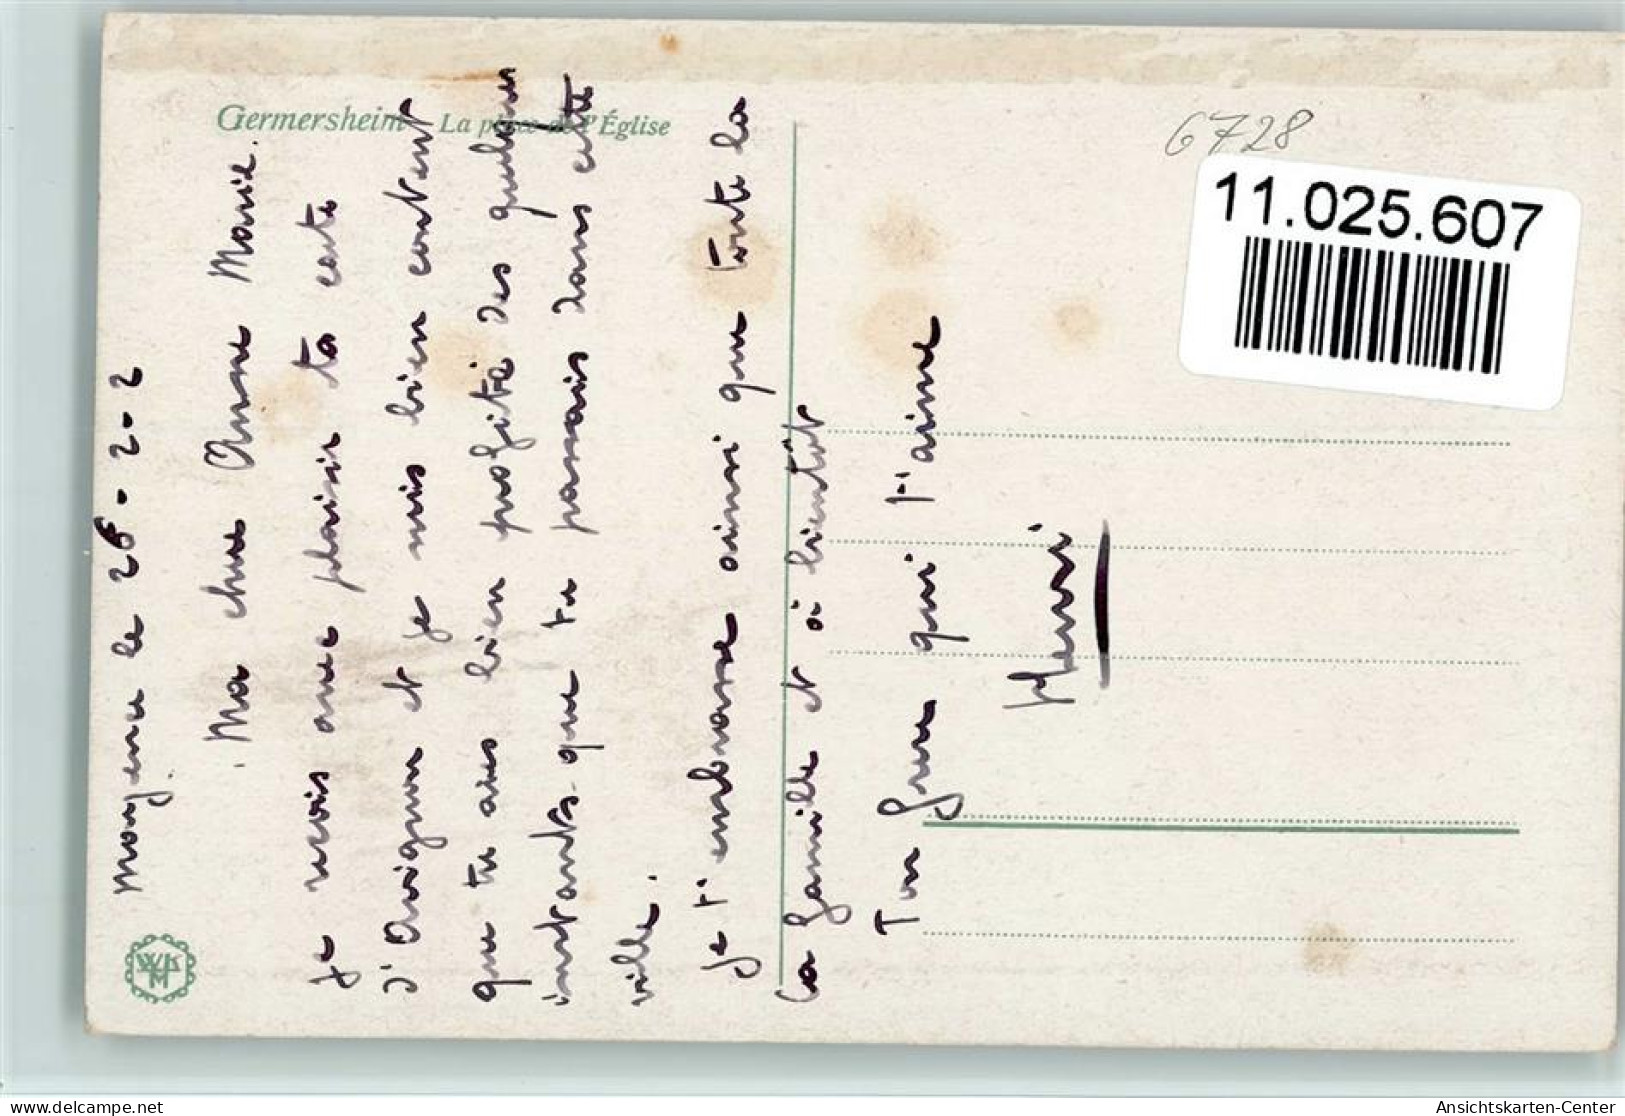 Germersheim - La place de l'Église
6728
11.025.607
le 26-2-2
Ma chère Anne Marie.
Je reçois avec plaisir ta carte
d'Avignon et je suis bien content
que tu aies bien profité des quelques
instants que tu passais dans cette
ville.
Je t'embrasse ainsi que toute la
la famille et à bientôt
Ton frère qui t'aime
Henri
delcampe.net
Ansichtskarten-Center